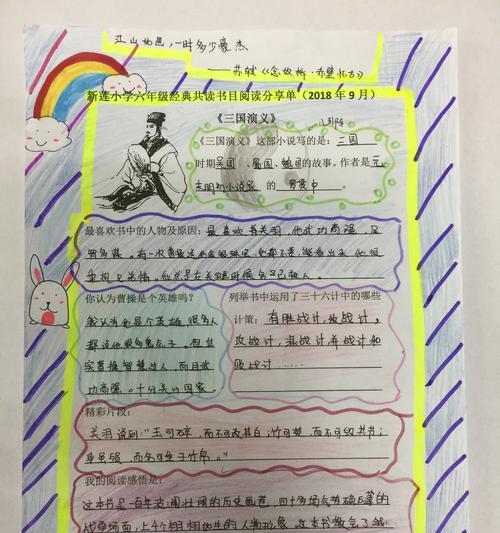 江山如画,一时多少豪杰
——苏轼《念奴娇·赤壁怀古》
新莲小学六年级经典共读书目阅读分享单(2018年9月)
《三国演义》
《三国演义》这部小说写的是:三国
时期吴国、蜀国、魏国的故事。作者是元
末明初小说家 的 罗贯中 。
最喜欢书中的人物及原因:最喜欢关羽,他武功高强,足
智多谋。有一次曹操送
重视兄弟情,他总是在关键时候舍己救人。
你认为曹操是个英雄吗?
我认为他是个英雄很多人
都说他 但其
实曹操智慧过人,而且武
功高强。十分关心国家。
列举书中运用了三十六计中的哪些
计策:有胜战计,敌战计,
攻战计,混战计并战计和
败战计
精彩片段:
关羽说到:"玉可碎,而不可改其白;竹可焚,而不可毁其节;
身虽殒,而名可垂于竹帛。
我的阅读感悟是:
这本书是一百年波澜壮阔的历史画卷,四十多场气势磅礴的
战争场面,上千个栩栩如生的人物形象。这本书教会了我